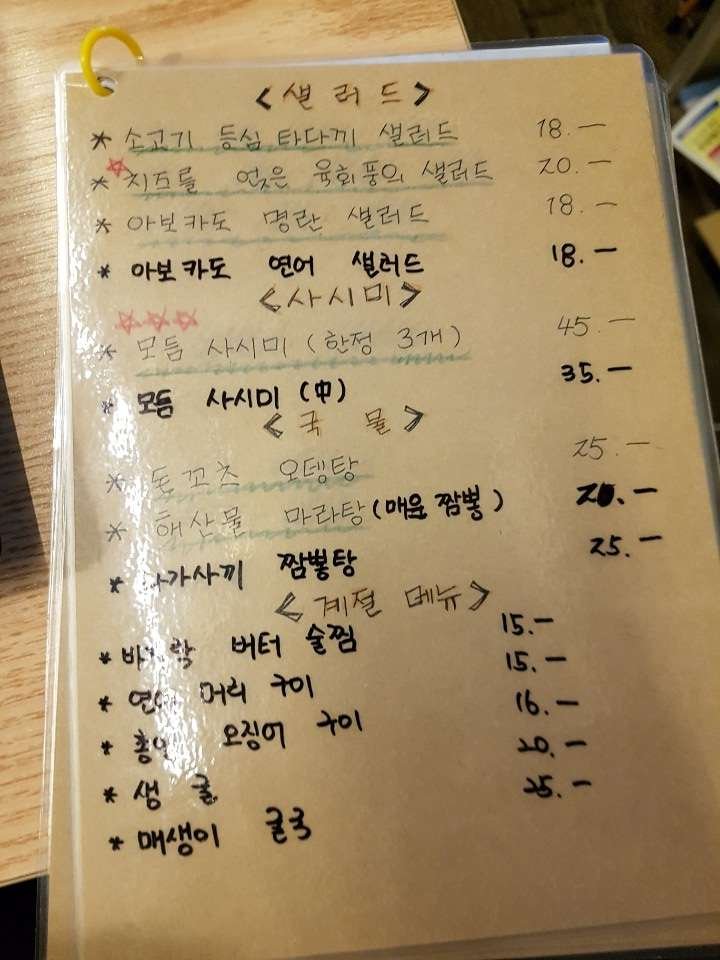 <샐러드>
* 소고기 등심 타다끼 샐러드 18.-
* 치즈를 얹은 육회풍의 샐러드 20.-
* 아보카도 명란 샐러드 18.-
* 아보카도 연어 샐러드 18.-
<사시미>
* 모듬 사시미 (한정 3개) 45.-
* 모듬 사시미 (中) 35.-
<국물>
* 돈꼬츠 오뎅탕 25.-
* 해산물 마라탕 (매운 짬뽕) 20.-
* 나가사끼 짬뽕탕 25.-
<계절 메뉴>
* 바지락 버터 술찜 15.-
* 연어 머리 구이 15.-
* 오징어 구이 16.-
* 생 굴 20.-
* 매생이 굴국 25.-